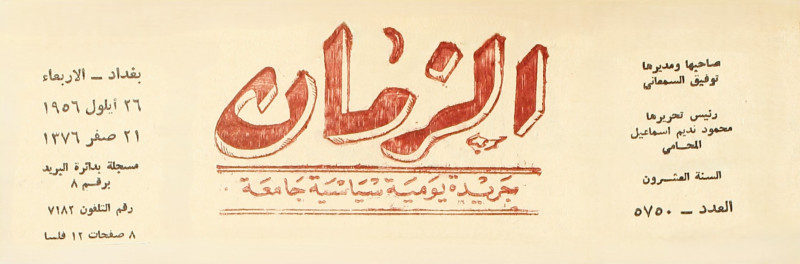 صاحبها ومديرها
توفيق السمعاني
رئيس تحريرها
محمود نديم اسماعيل
المحامي
السنة العشرون
العدد – ٥٧٥٠
الزمان
جريدة يومية سياسية جامعة
بغداد – الاربعاء
٢٦ أيلول ١٩٥٦
٢١ صفر ١٣٧٦
مسجلة بدائرة البريد
برقم ٨
رقم التلفون ٧١٨٢
٨ صفحات ١٢ فلسا